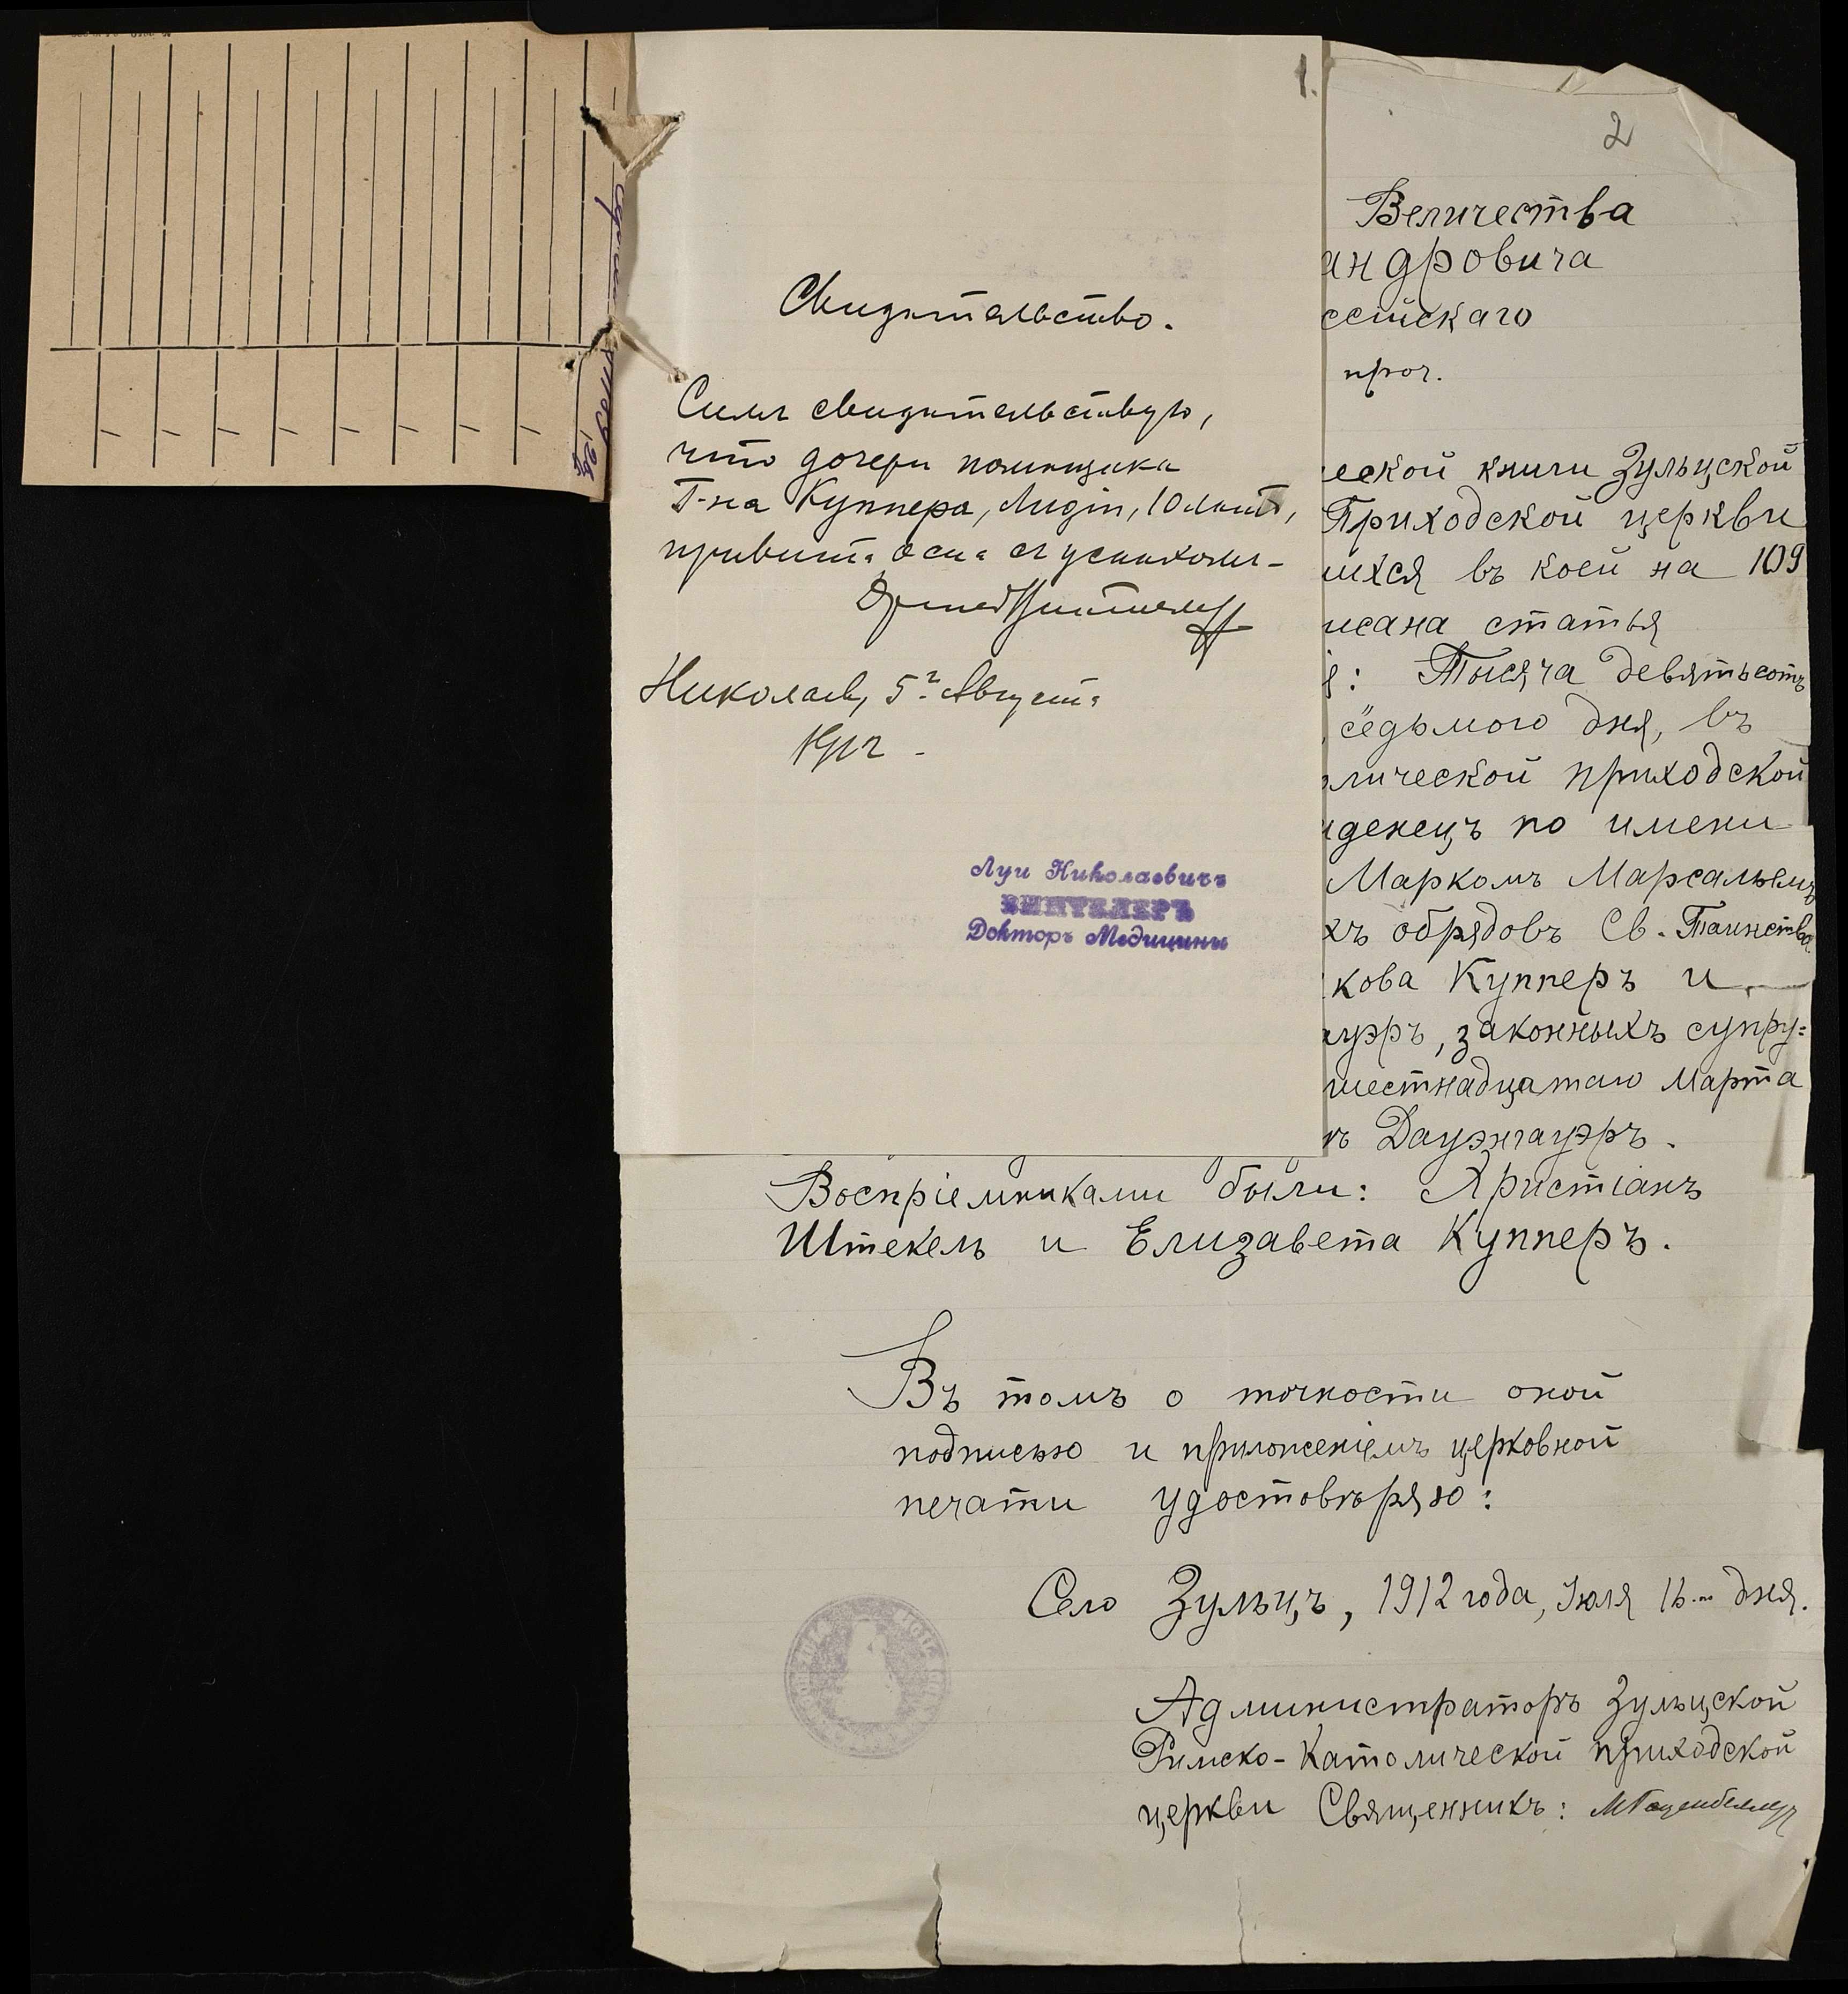 1.
Свидѣтельство.
Симъ свидѣтельствую,
что дочери помѣщика
Г-на Куппера, Лидіи, 10 лѣтъ,
привита оспа съ успѣхомъ -
Николаевъ, 5го Августа
1912 -
Луи Николаевичъ
ВИНТЕЛЕРЪ
Докторъ Медицины
2
Величества
андровича
ссійскаго
проч.
еской книги Зульцской
Приходской церкви
шихся въ коей на 109
исана статья
: Тысяча девятьсотъ
седьмого дня, въ
лической приходской
денецъ по имени
Маркомъ Марсальемъ
хъ обрядовъ Св. Таинства
кова Купперъ и
ауэръ, законныхъ супру=
шестнадцатаго Марта
Дауэнгауэръ.
Воспріемниками были: Христіанъ
Штекель и Елизавета Купперъ.
Въ томъ о точности оной
подписью и приложеніемъ церковной
печати удостовѣряю:
Село Зульцъ, 1912 года, Іюля 16-го дня.
Администраторъ Зульцской
Римско-Католической приходской
церкви Священникъ: